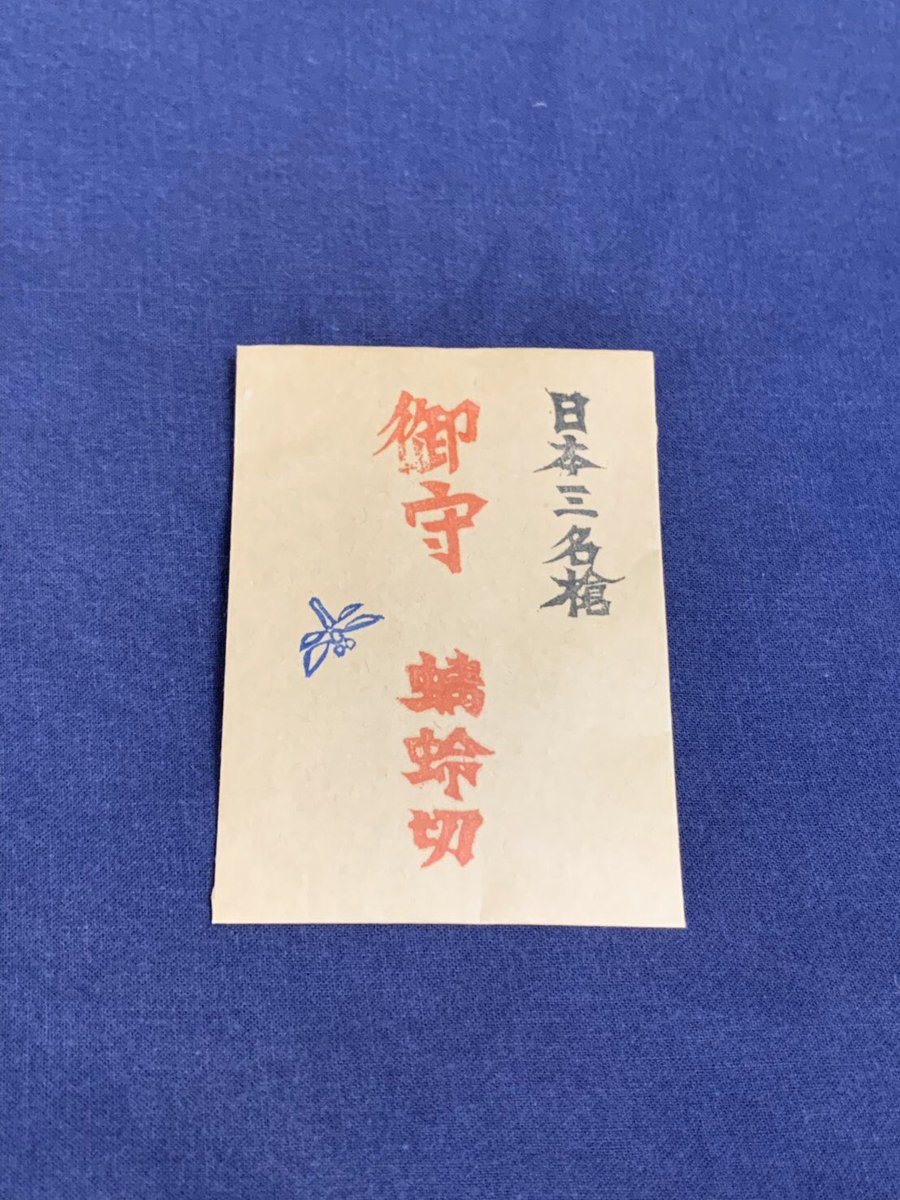 日本三名槍
御守 蜻蛉切